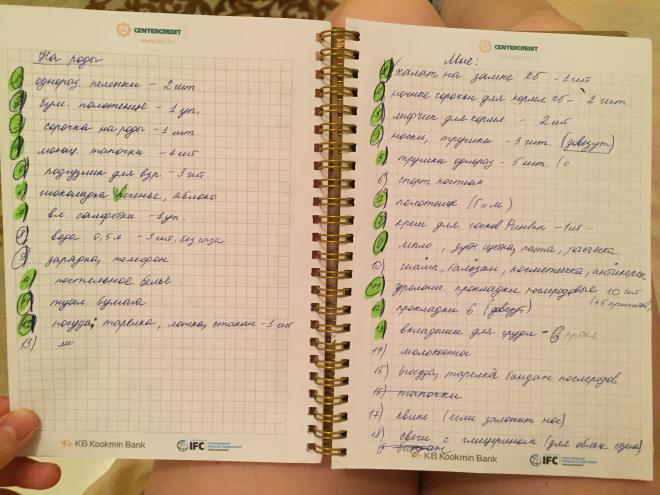 CENTERCREDIT
На роды
1) однораз. пеленки - 2 шт
2) бум. полотенце - 1 уп.
3) сорочка на роды - 1 шт.
4) моющ. тапочки - 1 шт
5) подгузник для взр. - 3 шт.
6) шоколадка, печенье, яблоко
7) вл. салфетки - 1 уп.
8) вода 0,5 л - 3 шт. без газа
9) зарядка, телефон
10) постельное белье
11) туал. бумага
12) посуда, тарелка, ложка, стакан - 1 шт
13)
KB Kookmin Bank
IFC
CENTERCREDIT
Мне:
1) халат на замке хб - 1 шт
2) ночные сорочки для кормл хб - 2 шт.
3) лифчик для кормл - 2 шт
4) носки, трусики - 3 шт. (довезут)
5) трусики однораз - 5 шт.
6) спорт костюм
7) полотенец (б и м)
8) крем для сосков - 1 шт
9) мыло, зубн щетка, паста, расческа
10) бальзам, косметичка,
11) прокладки послеродовые 10 шт
(+5
12) прокладки 6 (довезут)
13) вкладыши для груди - 6
14) молокоотсос
15) посуда, тарелка бандаж послеродов
16) тапочки
17) (если заложит нос)
18) свечи с глицерином (для облегч. стула)
KB Kookmin Bank
IFC